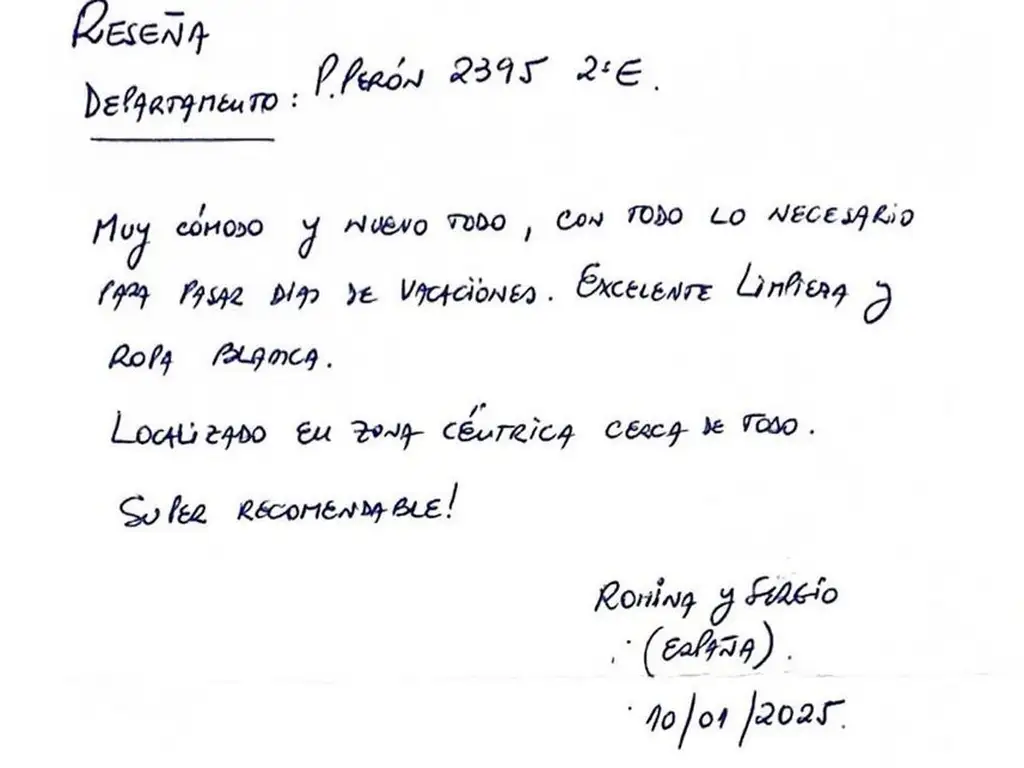 RESEÑA
DEPARTAMENTO: P.PERÓN 2395 2°E.
MUY CÓMODO Y NUEVO TODO, CON TODO LO NECESARIO
PARA PASAR DIAS DE VACACIONES. EXCELENTE LIMPIEZA Y
ROPA BLANCA.
LOCALIZADO EN ZONA CÉNTRICA CERCA DE TODO.
SUPER RECOMENDABLE!
ROMINA Y SERGIO
(ESPAÑA).
10/01/2025.